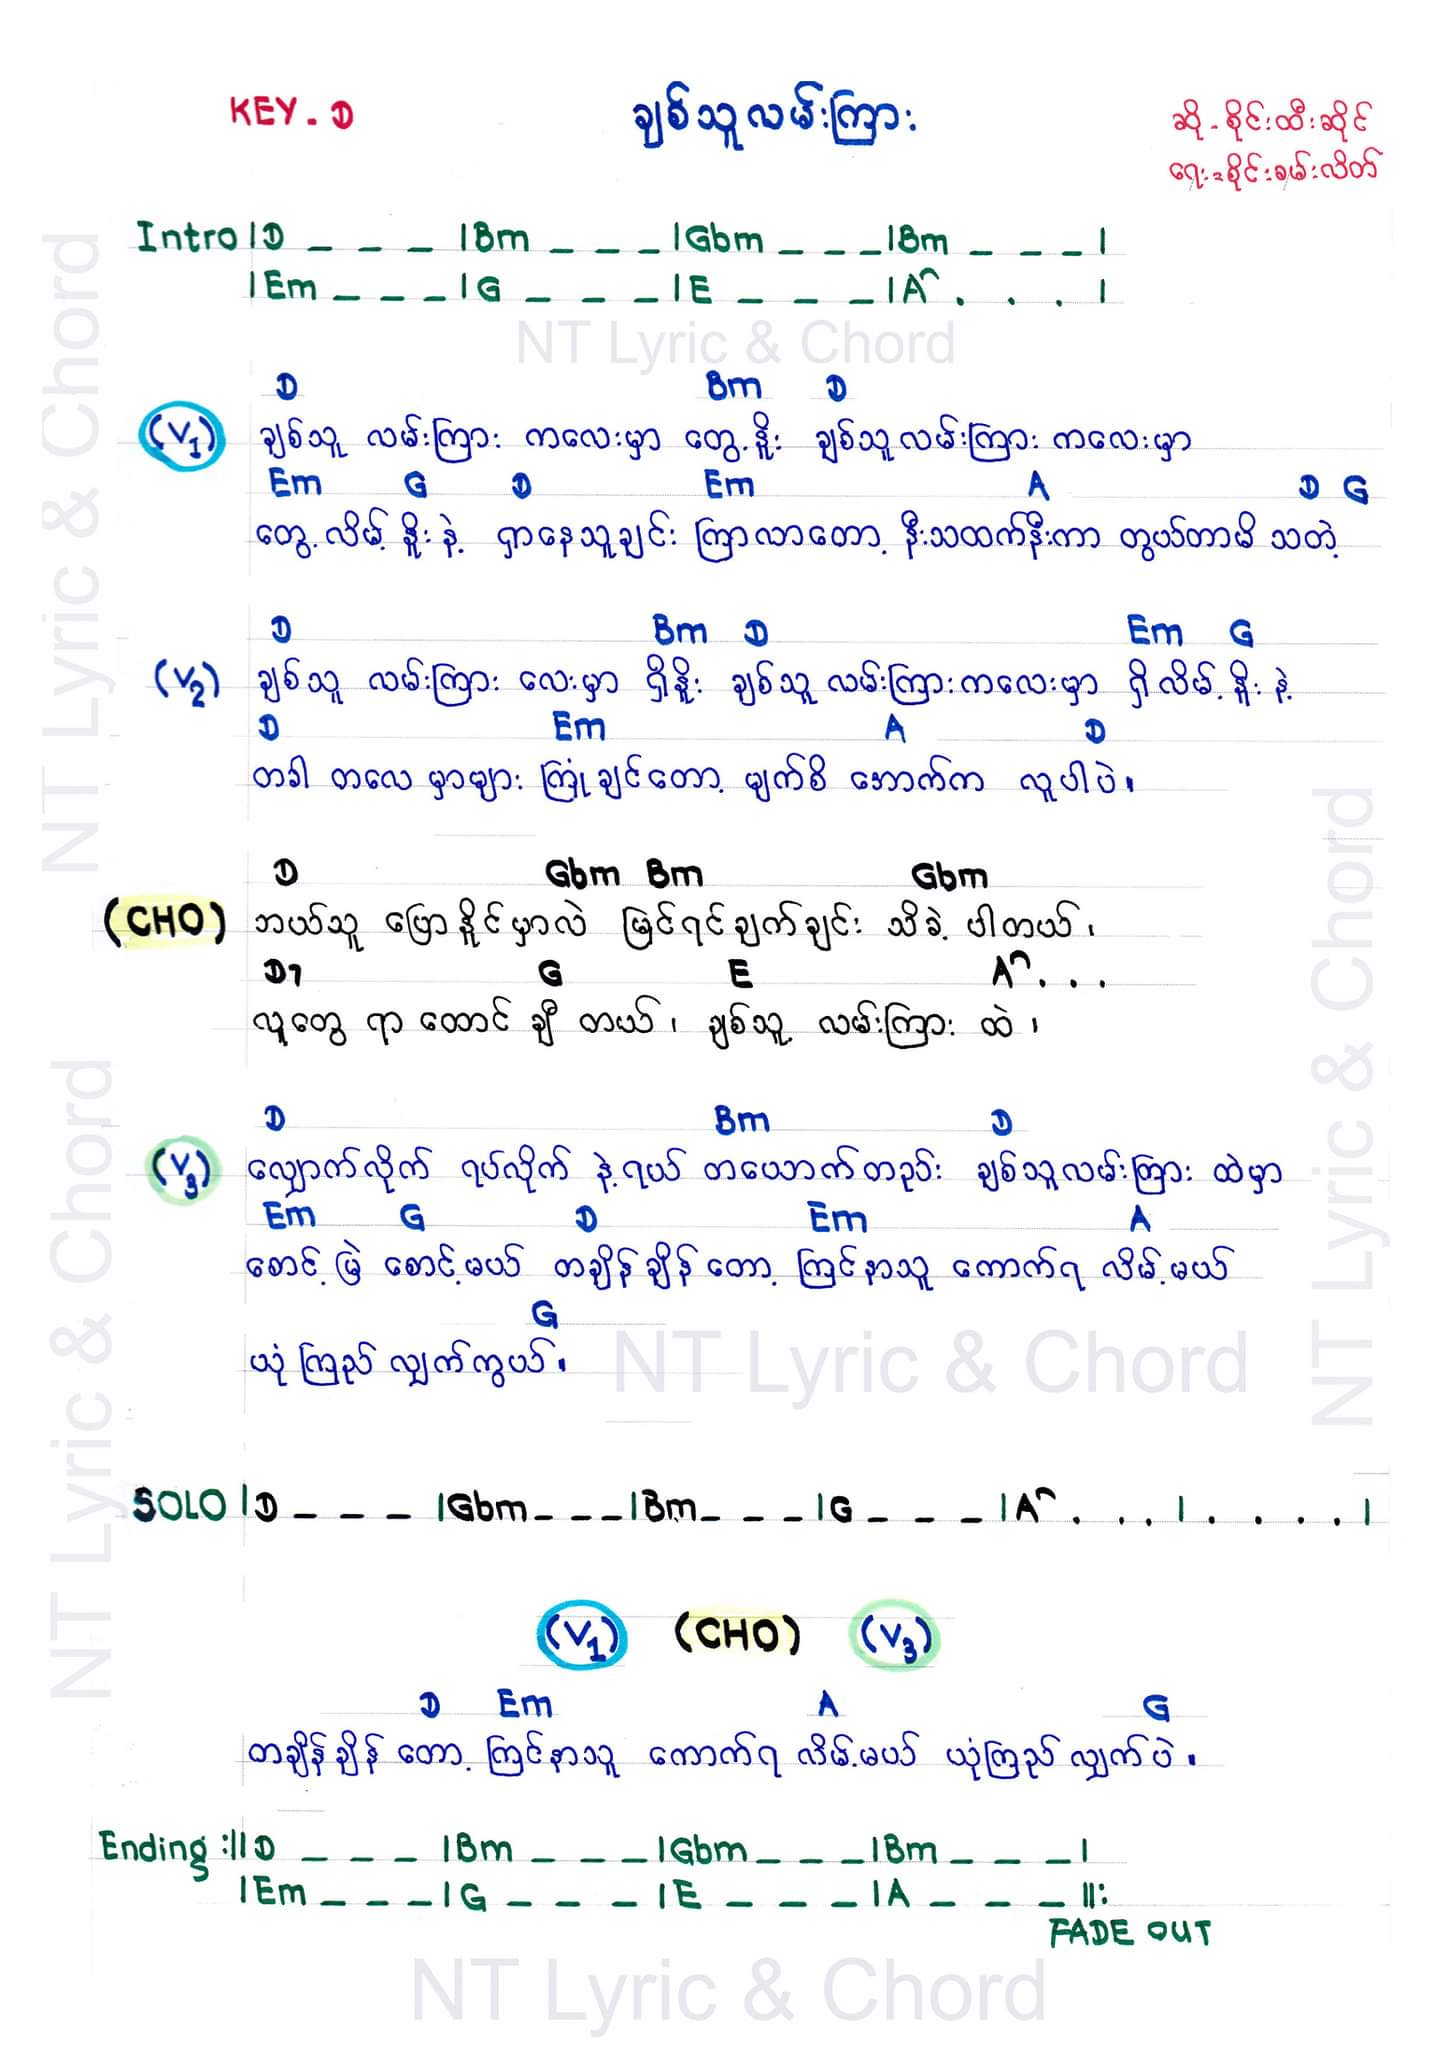 KEY - D
ချစ်သူလမ်းကြား
ဆို - စိုင်းထီးဆိုင်
ရေး = စိုင်းခမ်းလိတ်
Intro |D _ _ _ |Bm _ _ _ |Gbm _ _ _ |Bm _ _ _ |
|Em _ _ _ |G _ _ _ |E _ _ _ |A⌒ . . . |
NT Lyric & Chord
D Bm D
(V1) ချစ်သူ လမ်းကြား ကလေးမှာ တွေ့နိူး ချစ်သူလမ်းကြား ကလေးမှာ
Em G D Em A D G
တွေ့လိမ့် နိူးနဲ့ ငှာနေသူချင်း ကြာလာတော့ နီးသထက်နီးကာ တွယ်တာမိ သတဲ့
D Bm D Em G
(V2) ချစ်သူ လမ်းကြား လေးမှာ ရှိနိူး ချစ်သူ လမ်းကြားကလေးမှာ ရှိလိမ့် နိူးနဲ့
D Em A D
တခါ တလေ မှာများ ကြုံချင်တော့ မျက်စိ အောက်က လူပါပဲ။
D Gbm Bm Gbm
(CHO) ဘယ်သူ ပြောနိူင်မှာလဲ မြင်ရင်ချက်ချင်း သိခဲ့ ပါတယ်၊
D7 G E A⌒ . . .
လူတွေ ရာ ထောင် ချီ တယ်၊ ချစ်သူ့ လမ်းကြား ထဲ၊
D Bm D
(V3) လျှောက်လိုက် ရပ်လိုက် နဲ့ရယ် တယောက်တည်း ချစ်သူလမ်းကြား ထဲမှာ
Em G D Em A
စောင့်မြဲ စောင့်မယ် တချိန်ချိန် တော့ ကြင်နာသူ ကောက်ရ လိမ့်မယ်
G
ယုံကြည် လျှက်ကွယ်။
NT Lyric & Chord
SOLO |D _ _ _ |Gbm _ _ _ |Bm _ _ _ |G _ _ _ |A⌒ . . . | . . . . |
(V1) (CHO) (V3)
D Em A G
တချိန်ချိန် တော့ ကြင်နာသူ ကောက်ရ လိမ့်မယ် ယုံကြည် လျှက်ပဲ။
Ending :||D _ _ _ |Bm _ _ _ |Gbm _ _ _ |Bm _ _ _ |
|Em _ _ _ |G _ _ _ |E _ _ _ |A _ _ _ ||:
FADE OUT
NT Lyric & Chord
NT Lyric & Chord
NT Lyric & Chord
NT Lyric & Chord